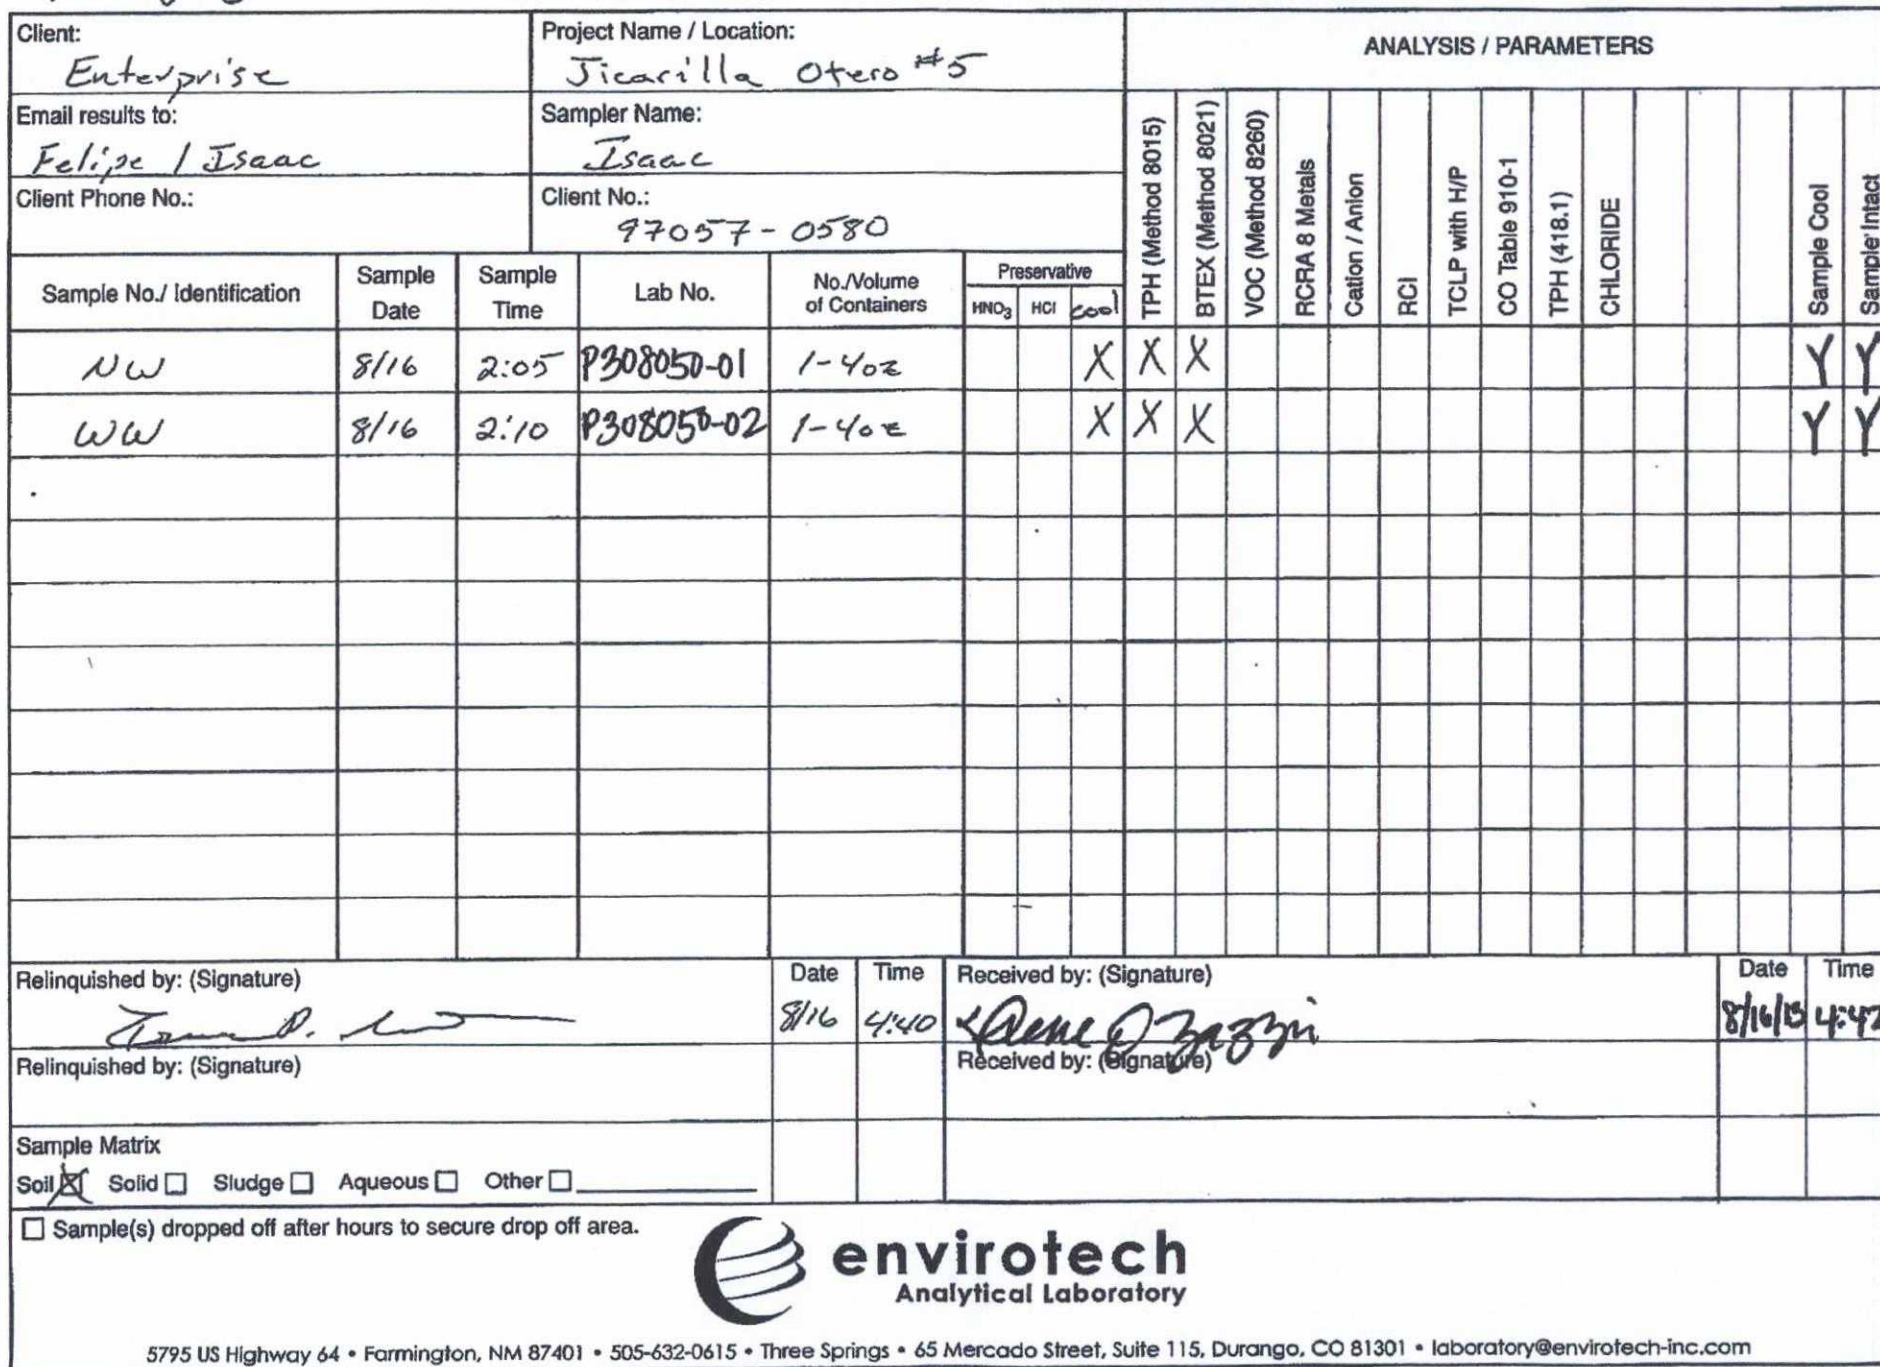 Client:
Enterprise
Project Name / Location:
Jicarilla Otero #5
ANALYSIS / PARAMETERS
Email results to:
Felipe / Isaac
Sampler Name:
Isaac
Client Phone No.:
Client No.:
97057-0580
Sample No./ Identification
Sample Date
Sample Time
Lab No.
No./Volume of Containers
Preservative
HNO3 HCl cool
TPH (Method 8015)
BTEX (Method 8021)
VOC (Method 8260)
RCRA 8 Metals
Cation / Anion
RCI
TCLP with H/P
CO Table 910-1
TPH (418.1)
CHLORIDE
Sample Cool
Sample Intact
NW 8/16 2:05 P308050-01 1-4oz X X X Y Y
WW 8/16 2:10 P308050-02 1-4oz X X X Y Y
Relinquished by: (Signature)
Date
8/16
Time
4:40
Received by: (Signature)
Date
8/16/13
Time
4:47
Relinquished by: (Signature)
Received by: (Signature)
Sample Matrix
Soil Solid Sludge Aqueous Other
Sample(s) dropped off after hours to secure drop off area.
envirotech
Analytical Laboratory
5795 US Highway 64 • Farmington, NM 87401 • 505-632-0615 • Three Springs • 65 Mercado Street, Suite 115, Durango, CO 81301 • laboratory@envirotech-inc.com